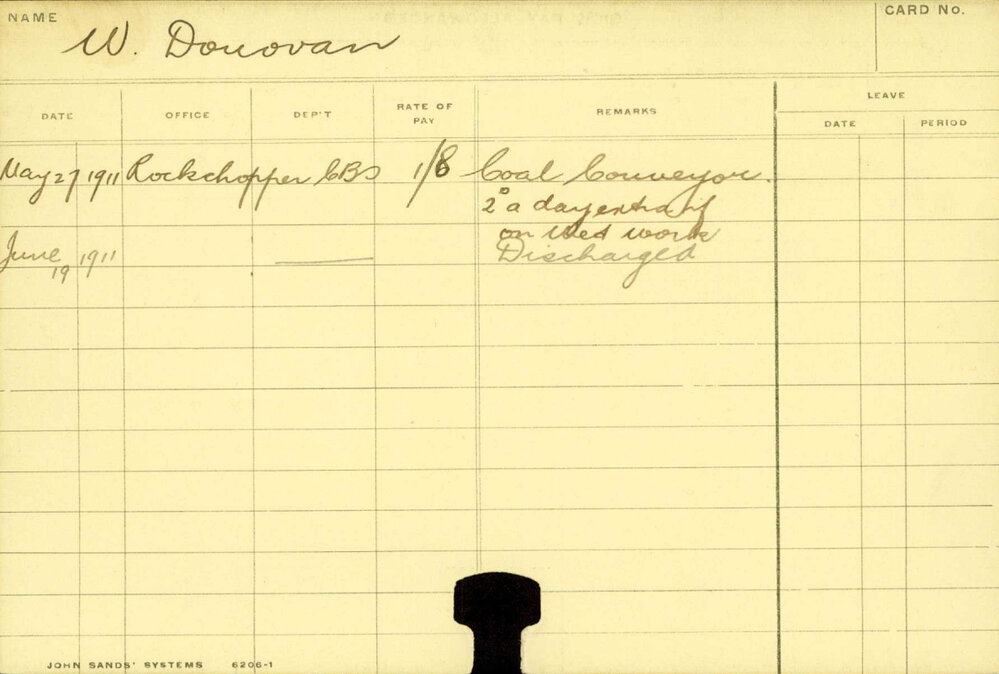 NAME
W. Donovan
CARD No.
DATE OFFICE DEP'T RATE OF PAY REMARKS LEAVE
DATE PERIOD
May 27 1911 Rockchopper CBS 1/8 Coal Conveyor.
2s a day extra if
on wet work
June 19 1911 Discharged
JOHN SANDS' SYSTEMS 6206-1